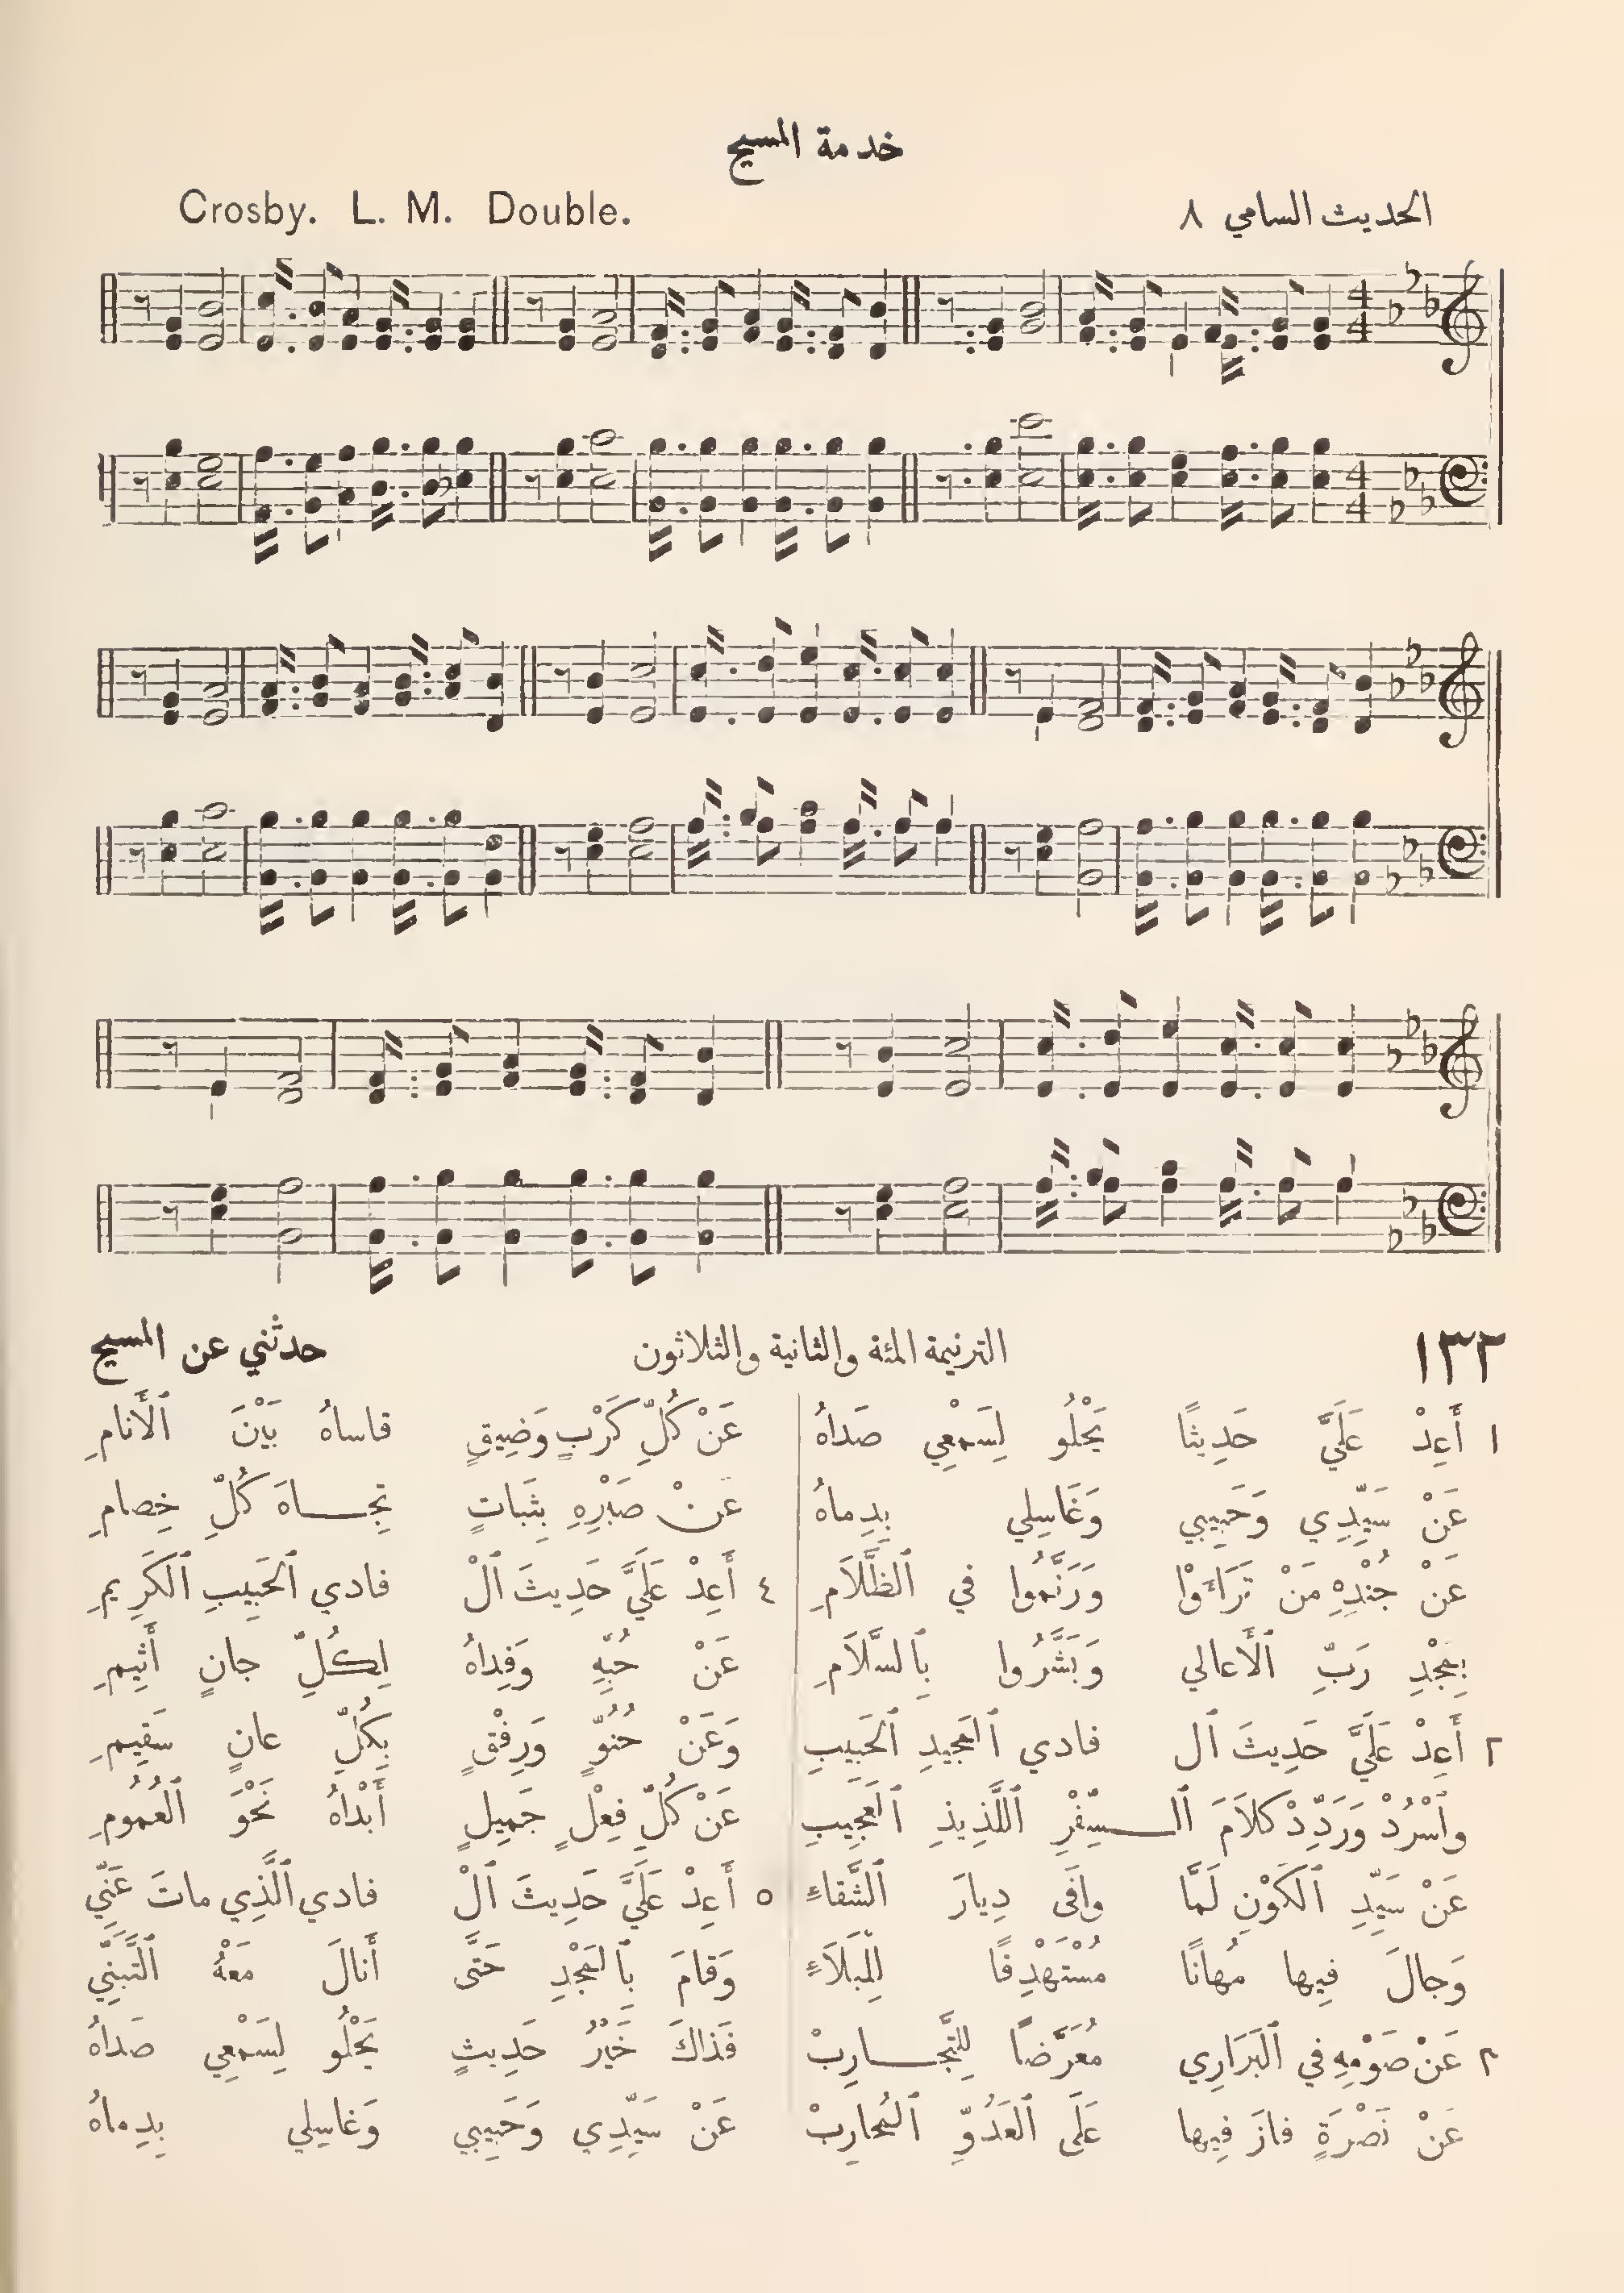 خدمة المسيح
Crosby. L. M. Double.
الحديث السامي ٨
١٣٢
الترنيمة المئة والثانية والثلاثون
حدثني عن المسيح
١ أَعِدْ عَلَيَّ حَدِيثًا يَحْلُو لِسَمْعِي صَداهُ
عَنْ سَيِّدِي وَحَبِيبِي وَغَاسِلِي بِدِماهُ
عَنْ جُنْدِهِ مَنْ تَرَاءَوْا وَرَنَّمُوا في ٱلظَّلَامِ
بِمَجْدِ رَبِّ ٱلْأَعالي وَبَشَّرُوا بِٱلسَّلَامِ
٢ أَعِدْ عَلَيَّ حَدِيثَ ٱل فادي ٱلْمَجِيدِ ٱلْحَبِيبِ
وٱسْرُدْ وَرَدِّدْ كلاَمَ ٱلـــسِّفْرِ ٱللَّذِيذِ ٱلْعَجِيبِ
عَنْ سَيِّدِ ٱلْكَوْنِ لَمَّا وافَى دِيارَ ٱلشَّقاءِ
وَجالَ فِيها مُهانًا مُسْتَهْدِفًا لِلْبَلَاءِ
٣ عَنْ صَوْمِهِ في ٱلْبَرَارِي مُعَرَّضًا لِلتَّجـــارِبْ
عَنْ نَصْرَةٍ فازَ فِيها عَلَى ٱلْعَدُوِّ ٱلْمُحارِبْ
عَنْ كُلِّ كَرْبٍ وَضِيقٍ قاساهُ بَيْنَ ٱلْأَنامِ
عَنْ صَبْرِهِ بِثَباتٍ تِجـــاهَ كُلِّ خِصامِ
٤ أَعِدْ عَلَيَّ حَدِيثَ ٱلْ فادي ٱلْحَبِيبِ ٱلْكَرِيمِ
عَنْ حُبِّهِ وَفِداهُ لِكُلِّ جانٍ أَثِيمِ
وَعَنْ حُنُوٍّ وَرِفْقٍ بِكُلِّ عانٍ سَقِيمِ
عَنْ كُلِّ فِعْلٍ جَمِيلٍ أَبْداهُ نَحْوَ ٱلْعُمُومِ
٥ أَعِدْ عَلَيَّ حَدِيثَ ٱلْ فادي ٱلَّذِي ماتَ عَنِّي
وَقامَ بِٱلْمَجْدِ حَتَّى أَنالَ مَعْهُ ٱلتَّبَنِّي
فَذاكَ خَيْرُ حَدِيثٍ يَحْلُو لِسَمْعِي صَداهُ
عَنْ سَيِّدِي وَحَبِيبِي وَغاسِلي بِدِماهُ